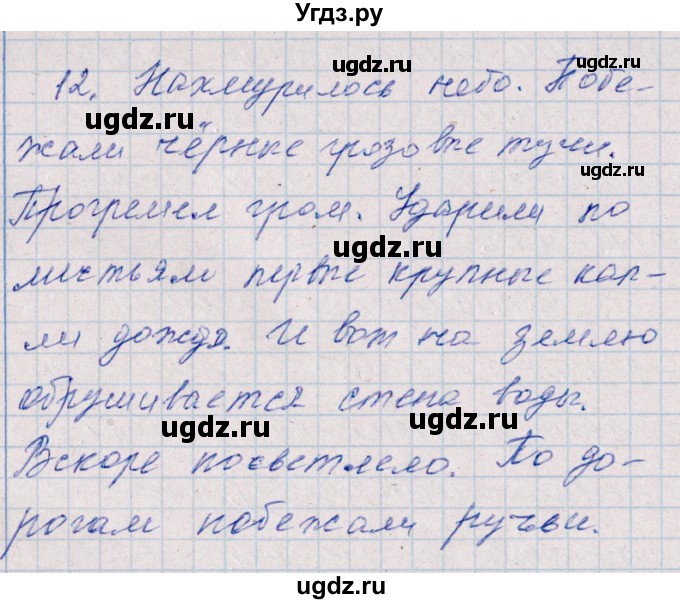 Угдз.ру
12. Нахмурилось небо. Побе-
ugdz.ru
ugdz.ru
жали чёрные грозовые тучи.
ugdz.ru
Прогремел гром. Ударили по
ugdz.ru
листьям первые крупные кап-
ли дождя. И вот на землю
ugdz.ru
обрушивается стена воды.
ugdz.ru
ugdz.ru
Вскоре посветлело. По до-
рогам побежали ручьи.
ugdz.ru